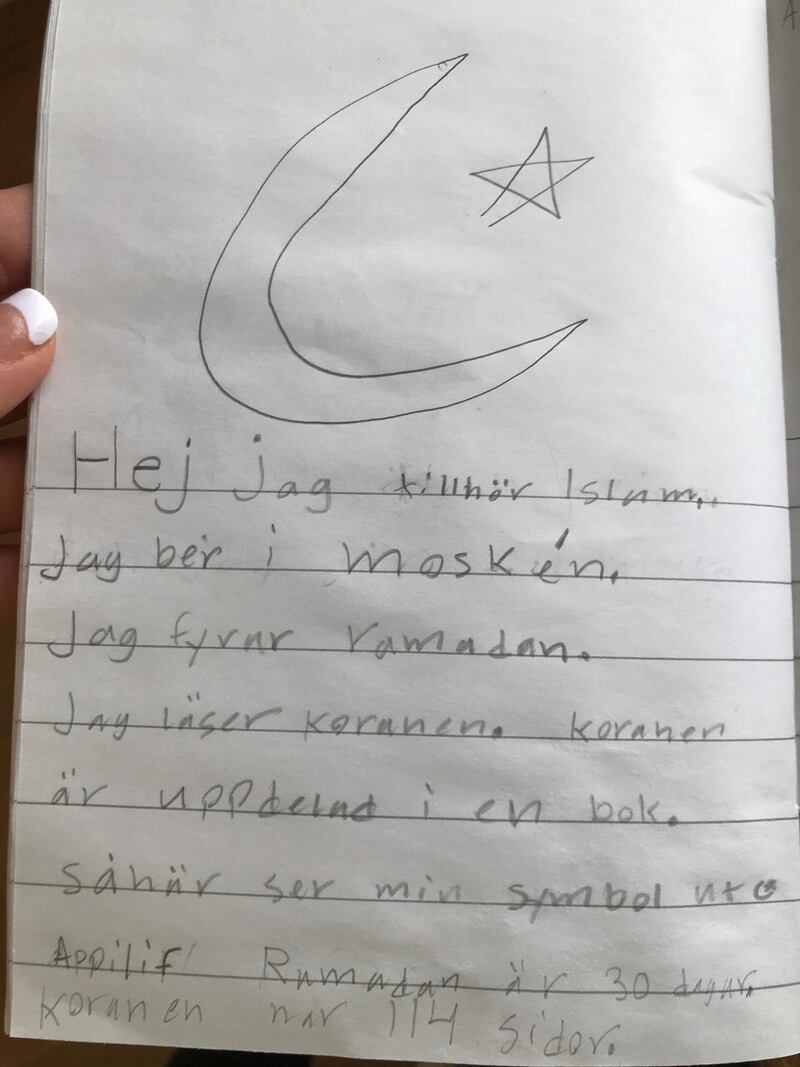 Hej jag tillhör Islam.
Jag ber i moskén.
Jag fyrar ramadan.
Jag läser koranen. koranen
är uppdelad i en bok.
såhär ser min symbol ut
Appilif Ramadan är 30 dagar.
koranen har 114 sidor.